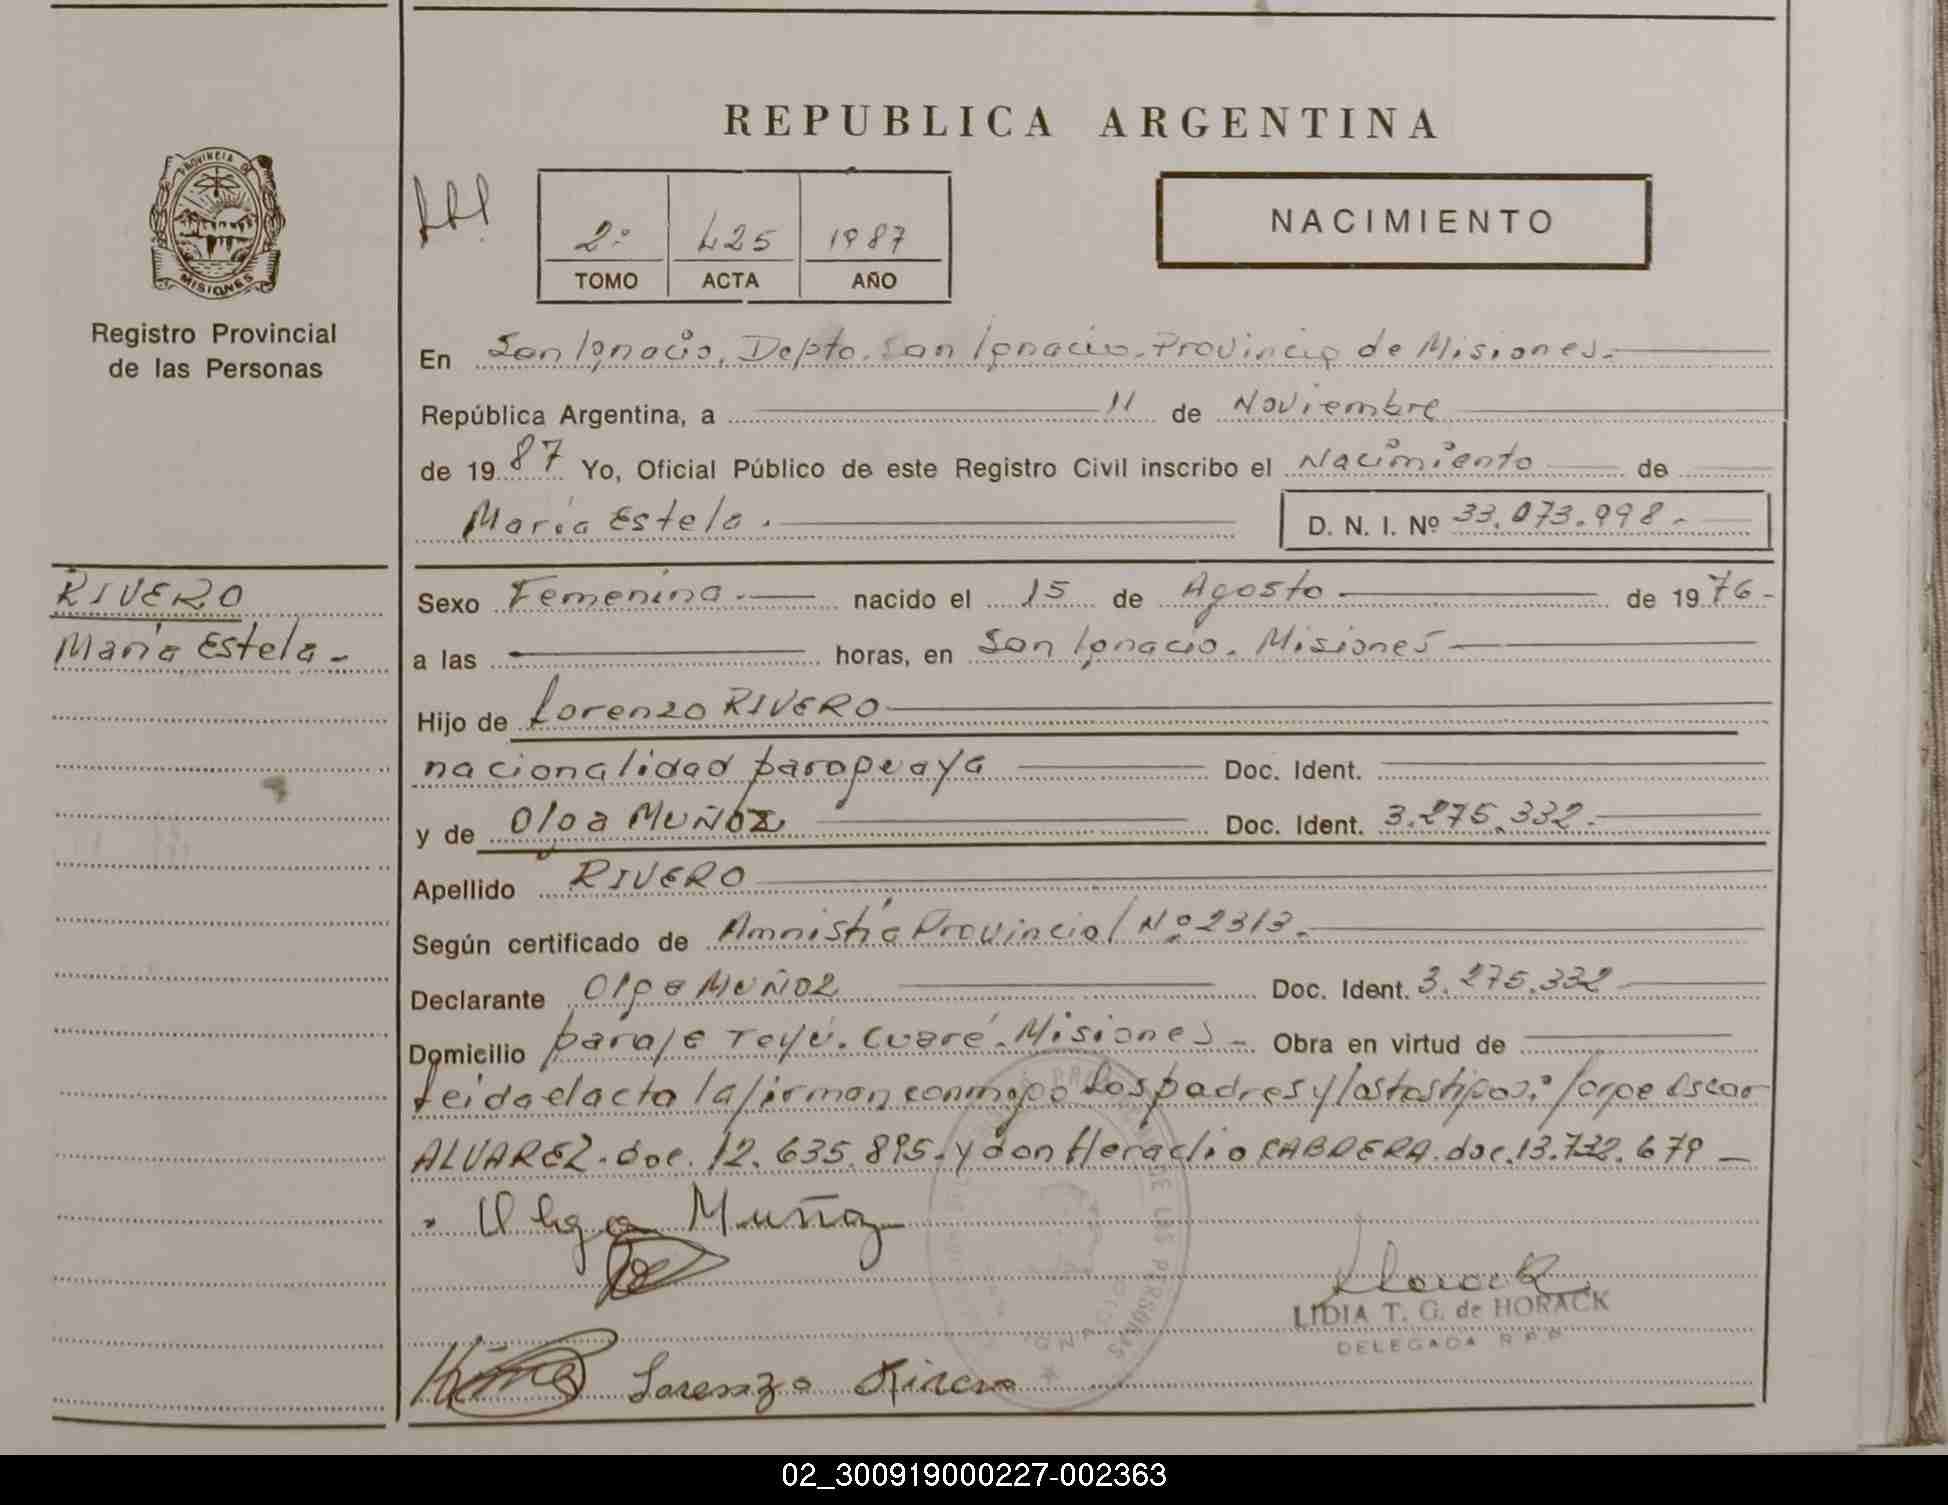 REPUBLICA ARGENTINA
PROVINCIA DE
MISIONES
Registro Provincial
de las Personas
2º 425 1987
TOMO ACTA AÑO
NACIMIENTO
En San Ignacio. Depto. San Ignacio. Provincia de Misiones.
República Argentina, a 11 de Noviembre
de 1987 Yo, Oficial Público de este Registro Civil inscribo el Nacimiento de
María Estela. D. N. I. Nº 33.073.998.-
RIVERO
María Estela.-
Sexo Femenina.- nacido el 15 de Agosto de 1976-
a las horas, en San Ignacio. Misiones
Hijo de Lorenzo RIVERO
nacionalidad paraguaya Doc. Ident.
y de Olga MUÑOZ Doc. Ident. 3.275.332.-
Apellido RIVERO
Según certificado de Amnistía Provincial Nº 2313.-
Declarante Olga MUÑOZ Doc. Ident. 3.275.332
Domicilio paraje Teyú. Cuaré. Misiones- Obra en virtud de
Leida el acta la firman conmigo Los padres y los Jorge Oscar
ALVAREZ. doc. 12.635.895. y don Heraclio CABRERA. doc. 13.732.679-
Olga Muñoz
LIDIA T. G. de HORACK
DELEGADA R P P
Lorenzo Rivero
DE LAS PERSONAS
02_300919000227-002363